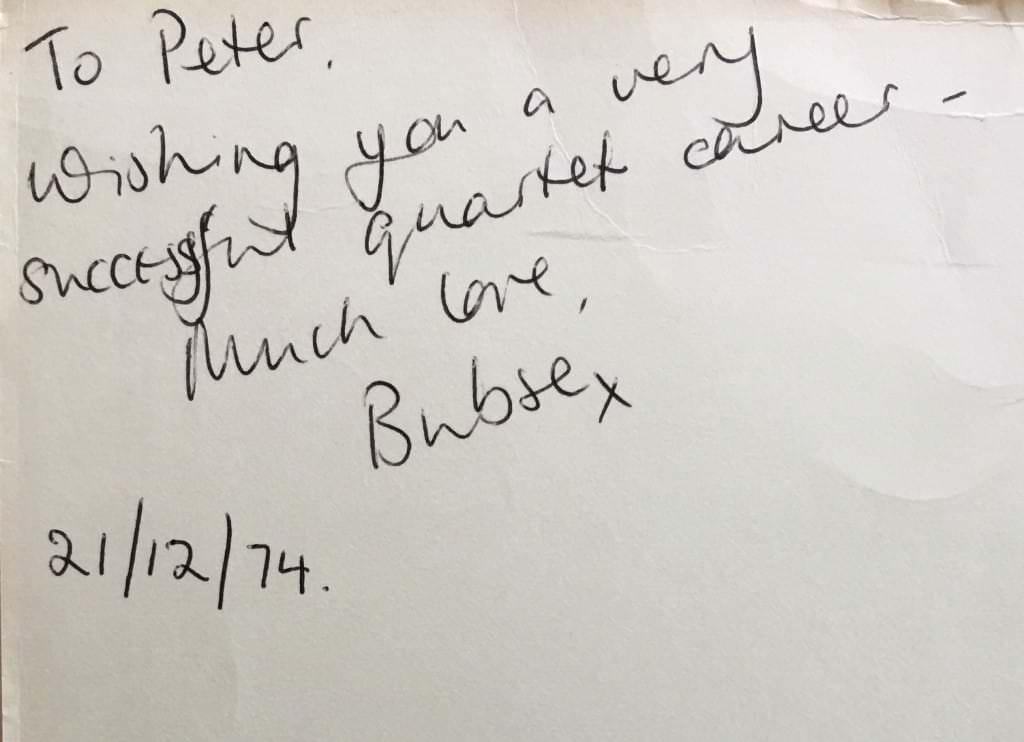 To Peter.
Wishing you a very
successful quartet career -
Much love,
Bubse x
21/12/74.